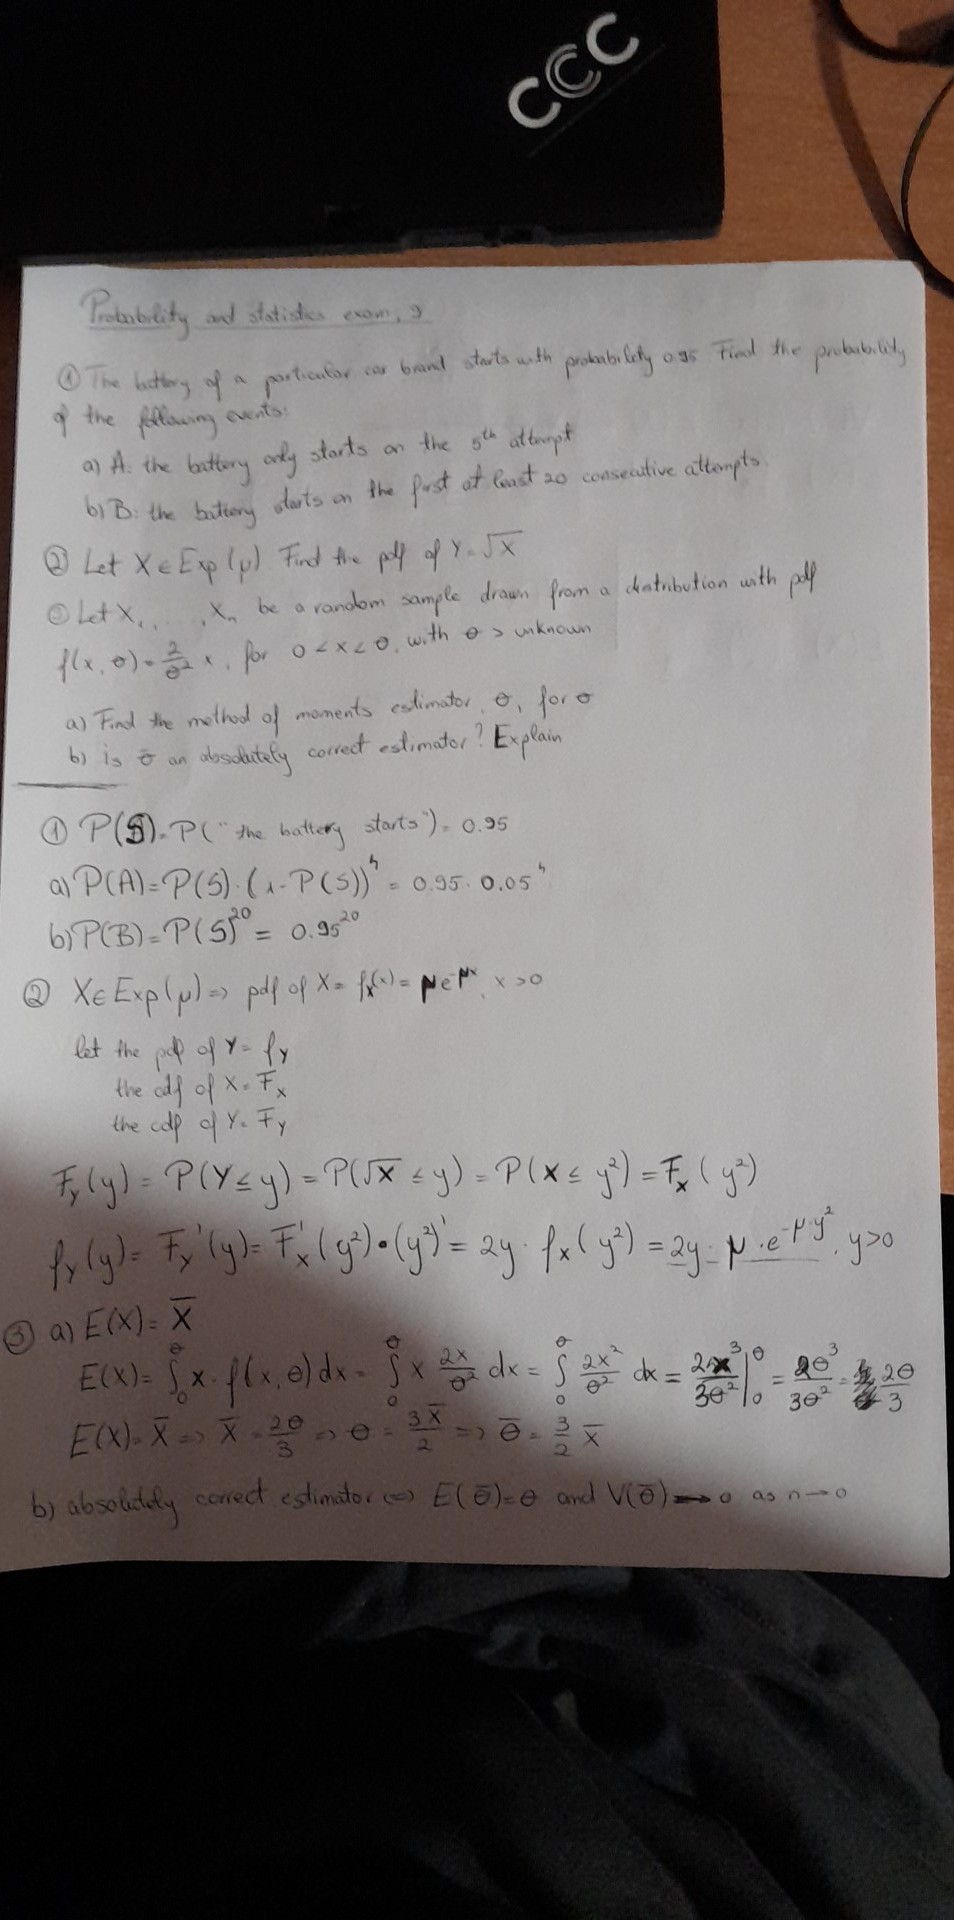 CCC
Probability and statistics exam, 9
① The battery of a particular car brand starts with probability 0.95 Find the probability
of the following events:
a) A: the battery only starts on the 5th attempt
b) B: the battery starts on the first at least 20 consecutive attempts.
② Let X ∈ Exp(μ) Find the pdf of Y = √X
③ Let X₁, ..., Xₙ be a random sample drawn from a distribution with pdf
f(x, θ) = 2/θ² x, for 0 < x < θ, with θ > unknown
a) Find the method of moments estimator, θ, for θ
b) is θ̄ an absolutely correct estimator? Explain
① P(S) = P("the battery starts") = 0.95
a) P(A) = P(S) · (1 - P(S))⁴ = 0.95 · 0.05⁴
b) P(B) = P(S)²⁰ = 0.95²⁰
② X ∈ Exp(μ) => pdf of X = fₓ(x) = μe^-μx, x > 0
let the pdf of Y = f_Y
the cdf of X = F_X
the cdf of Y = F_Y
F_Y(y) = P(Y ≤ y) = P(√X ≤ y) = P(X ≤ y²) = F_X(y²)
f_Y(y) = F_Y'(y) = F_X'(y²) · (y²)' = 2y · f_X(y²) = 2y · μ · e^-μ·y², y > 0
③ a) E(X) = X̄
E(X) = ∫₀^θ x · f(x, θ) dx = ∫₀^θ x 2x/θ² dx = ∫₀^θ 2x²/θ² dx = 2x³/3θ² |₀^θ = 2θ³/3θ² = 2θ/3
E(X) = X̄ => X̄ = 2θ/3 => θ = 3X̄/2 => θ̄ = 3/2 X̄
b) absolutely correct estimator <=> E(θ̄) = θ and V(θ̄) → 0 as n → 0